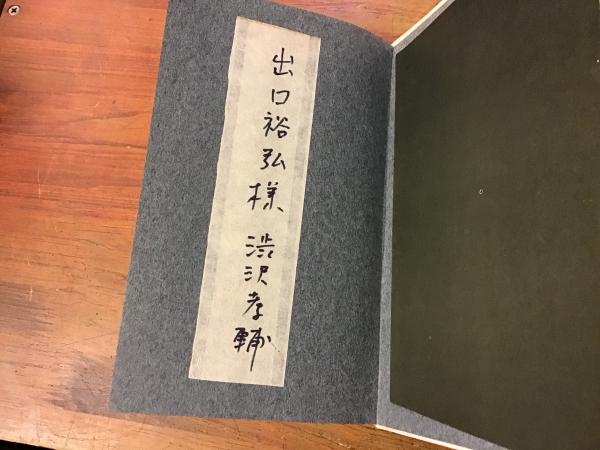 出口裕弘様
渋沢孝輔